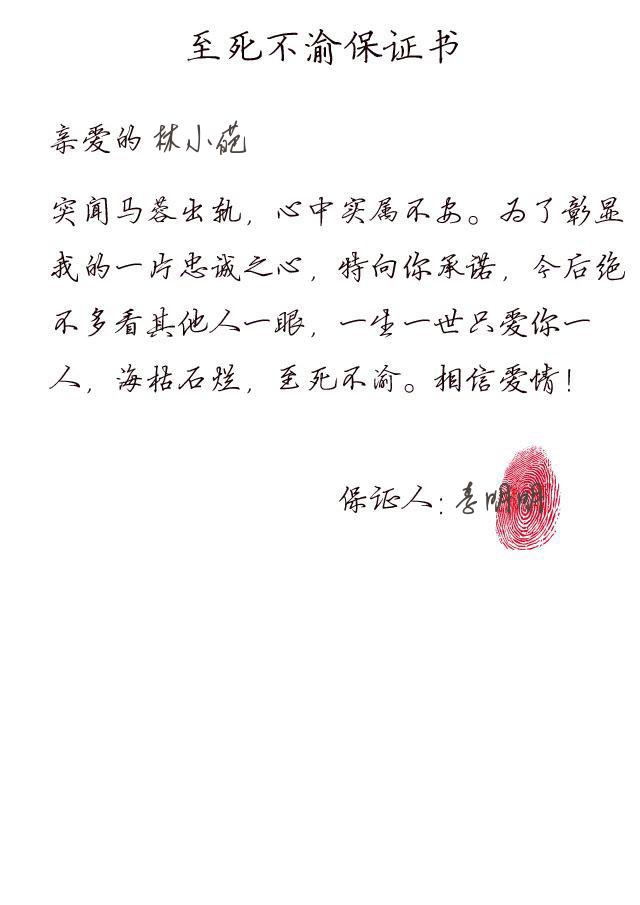 至死不渝保证书
亲爱的 林小葩
突闻马蓉出轨，心中实属不安。为了彰显
我的一片忠诚之心，特向你承诺，今后绝
不多看其他人一眼，一生一世只爱你一
人，海枯石烂，至死不渝。相信爱情！
保证人：李明明